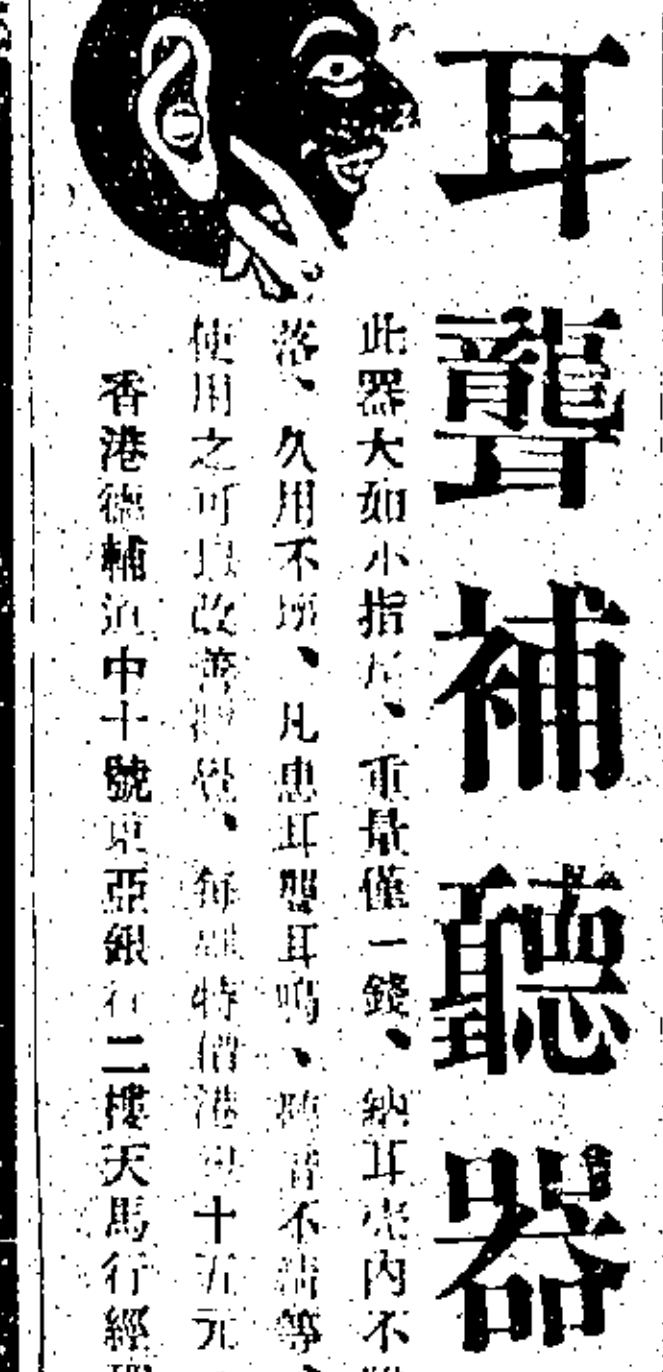 耳聾補聽器
此器大如小指、重量僅一錢、納耳壳內不
落、久用不壞、凡患耳聾耳鳴、聽音不清等、
使用之可以改善聽覺、每個特價港幣十五元
香港德輔道中十號東亞銀行二樓天馬行經理